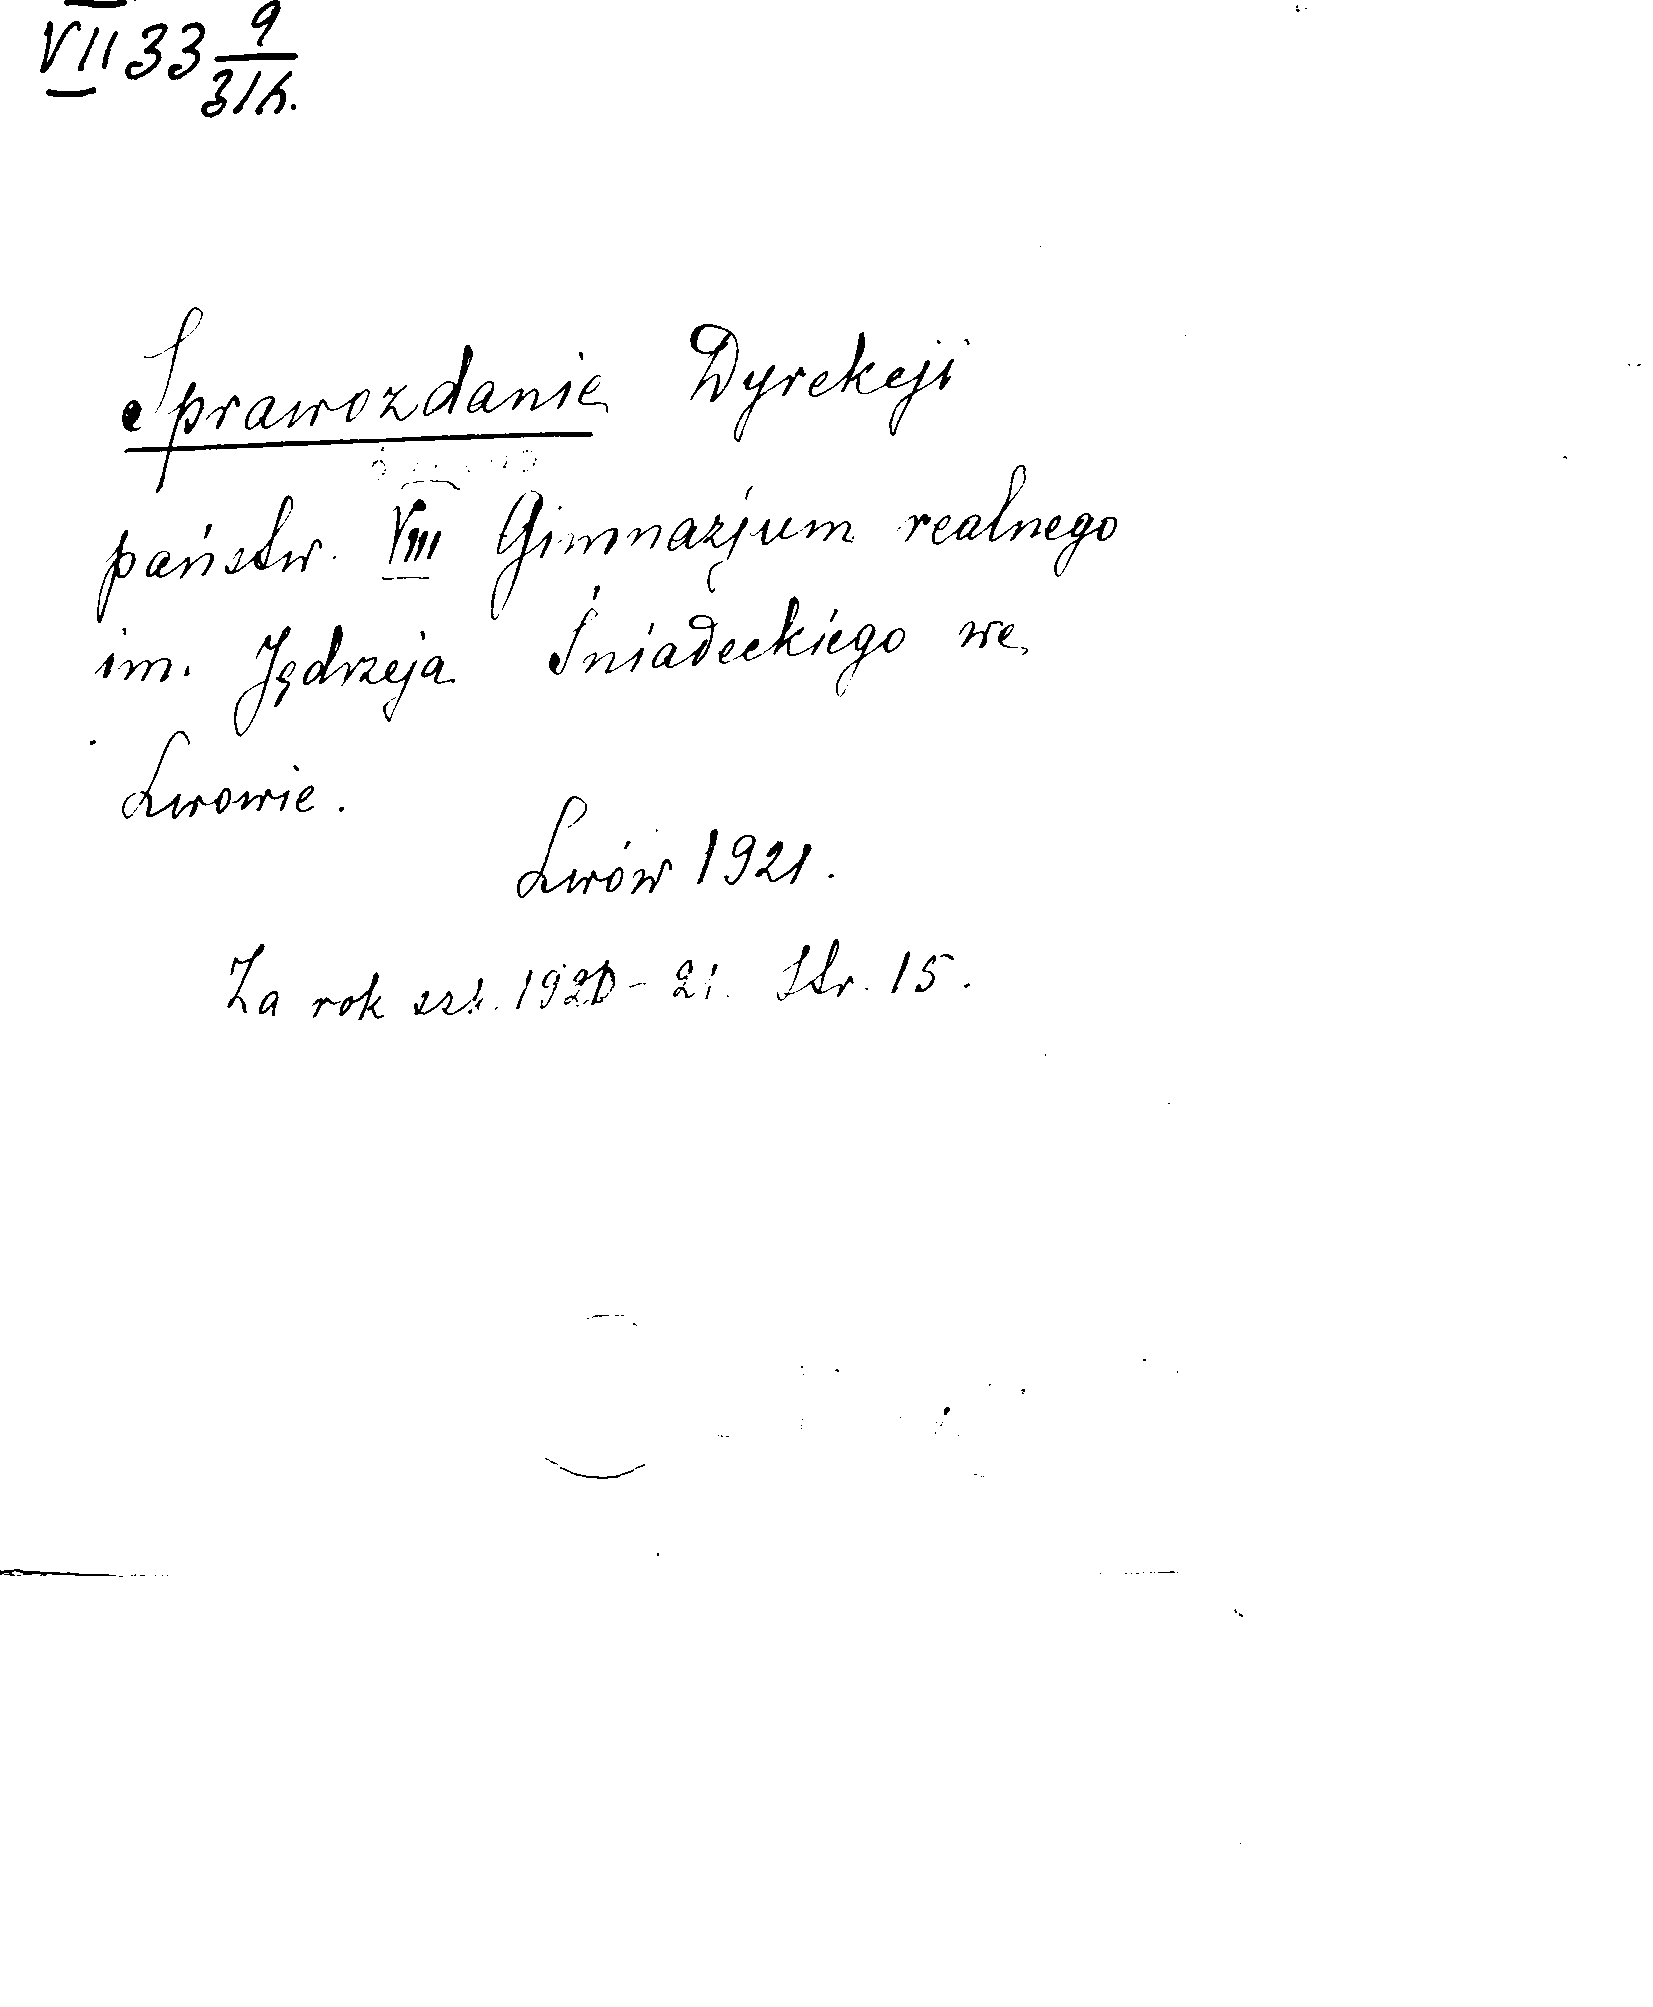 VII 33 9/31h.
Sprawozdanie Dyrekcji
państw. VIII Gimnazjum realnego
im. Jędrzeja Śniadeckiego we
Lwowie.
Lwów 1921.
Za rok szk. 1920-21. Str. 15.